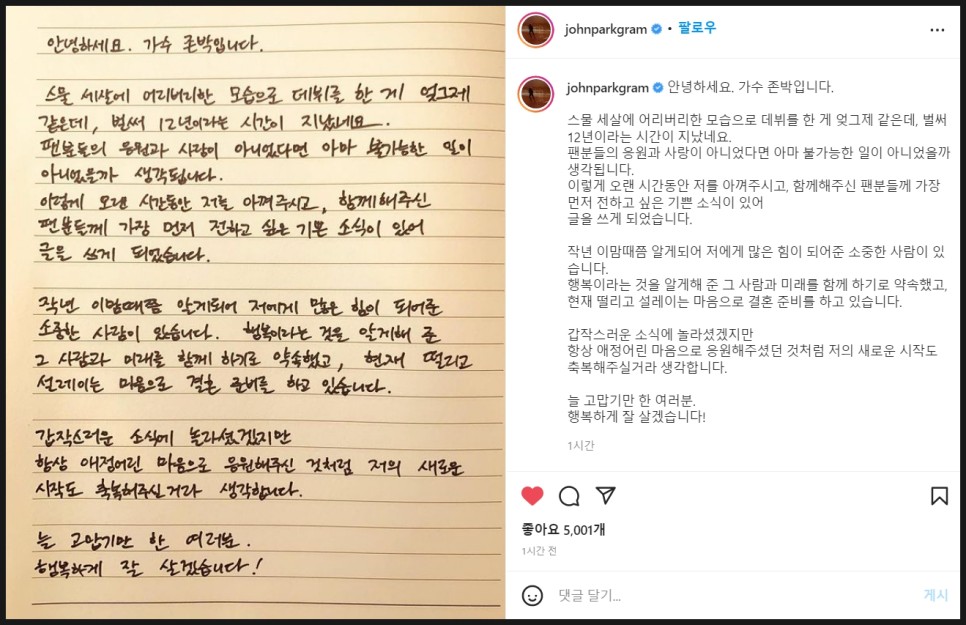 안녕하세요. 가수 존박입니다.
스물 세살에 어리버리한 모습으로 데뷔를 한 게 엊그제
같은데, 벌써 12년이라는 시간이 지났네요.
팬분들의 응원과 사랑이 아니었다면 아마 불가능한 일이
아니었을까 생각됩니다.
이렇게 오랜 시간동안 저를 아껴주시고, 함께해주신
팬분들께 가장 먼저 전하고 싶은 기쁜 소식이 있어
글을 쓰게 되었습니다.
작년 이맘때쯤 알게되어 저에게 많은 힘이 되어준
소중한 사람이 있습니다. 행복이라는 것을 알게해 준
그 사람과 미래를 함께 하기로 약속했고, 현재 떨리고
설레이는 마음으로 결혼 준비를 하고 있습니다.
갑작스러운 소식에 놀라셨겠지만
항상 애정어린 마음으로 응원해주신 것처럼 저의 새로운
시작도 축복해주신거라 생각합니다.
늘 고맙기만 한 여러분.
행복하게 잘 살겠습니다!
johnparkgram • 팔로우
johnparkgram 안녕하세요. 가수 존박입니다.
스물 세살에 어리버리한 모습으로 데뷔를 한 게 엊그제 같은데, 벌써
12년이라는 시간이 지났네요.
팬분들의 응원과 사랑이 아니었다면 아마 불가능한 일이 아니었을까
생각됩니다.
이렇게 오랜 시간동안 저를 아껴주시고, 함께해주신 팬분들께 가장
먼저 전하고 싶은 기쁜 소식이 있어
글을 쓰게 되었습니다.
작년 이맘때쯤 알게되어 저에게 많은 힘이 되어준 소중한 사람이 있
습니다.
행복이라는 것을 알게해 준 그 사람과 미래를 함께 하기로 약속했고,
현재 떨리고 설레이는 마음으로 결혼 준비를 하고 있습니다.
갑작스러운 소식에 놀라셨겠지만
항상 애정어린 마음으로 응원해주셨던 것처럼 저의 새로운 시작도
축복해주실거라 생각합니다.
늘 고맙기만 한 여러분.
행복하게 잘 살겠습니다!
1시간
좋아요 5,001개
1시간 전
댓글 달기...
게시